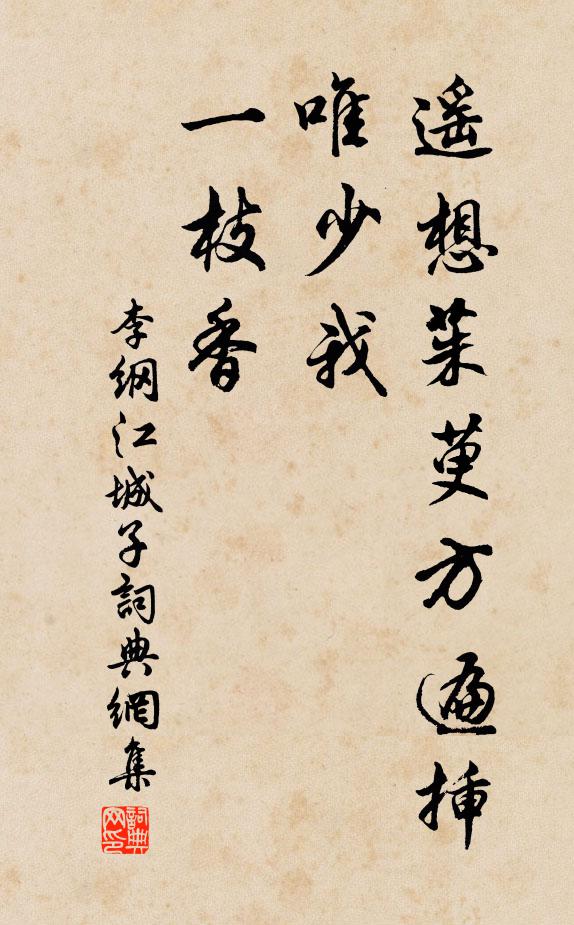 遥想茱萸方遍插
唯少我
一枝香
李綱江城子詞典網集
詞典網印